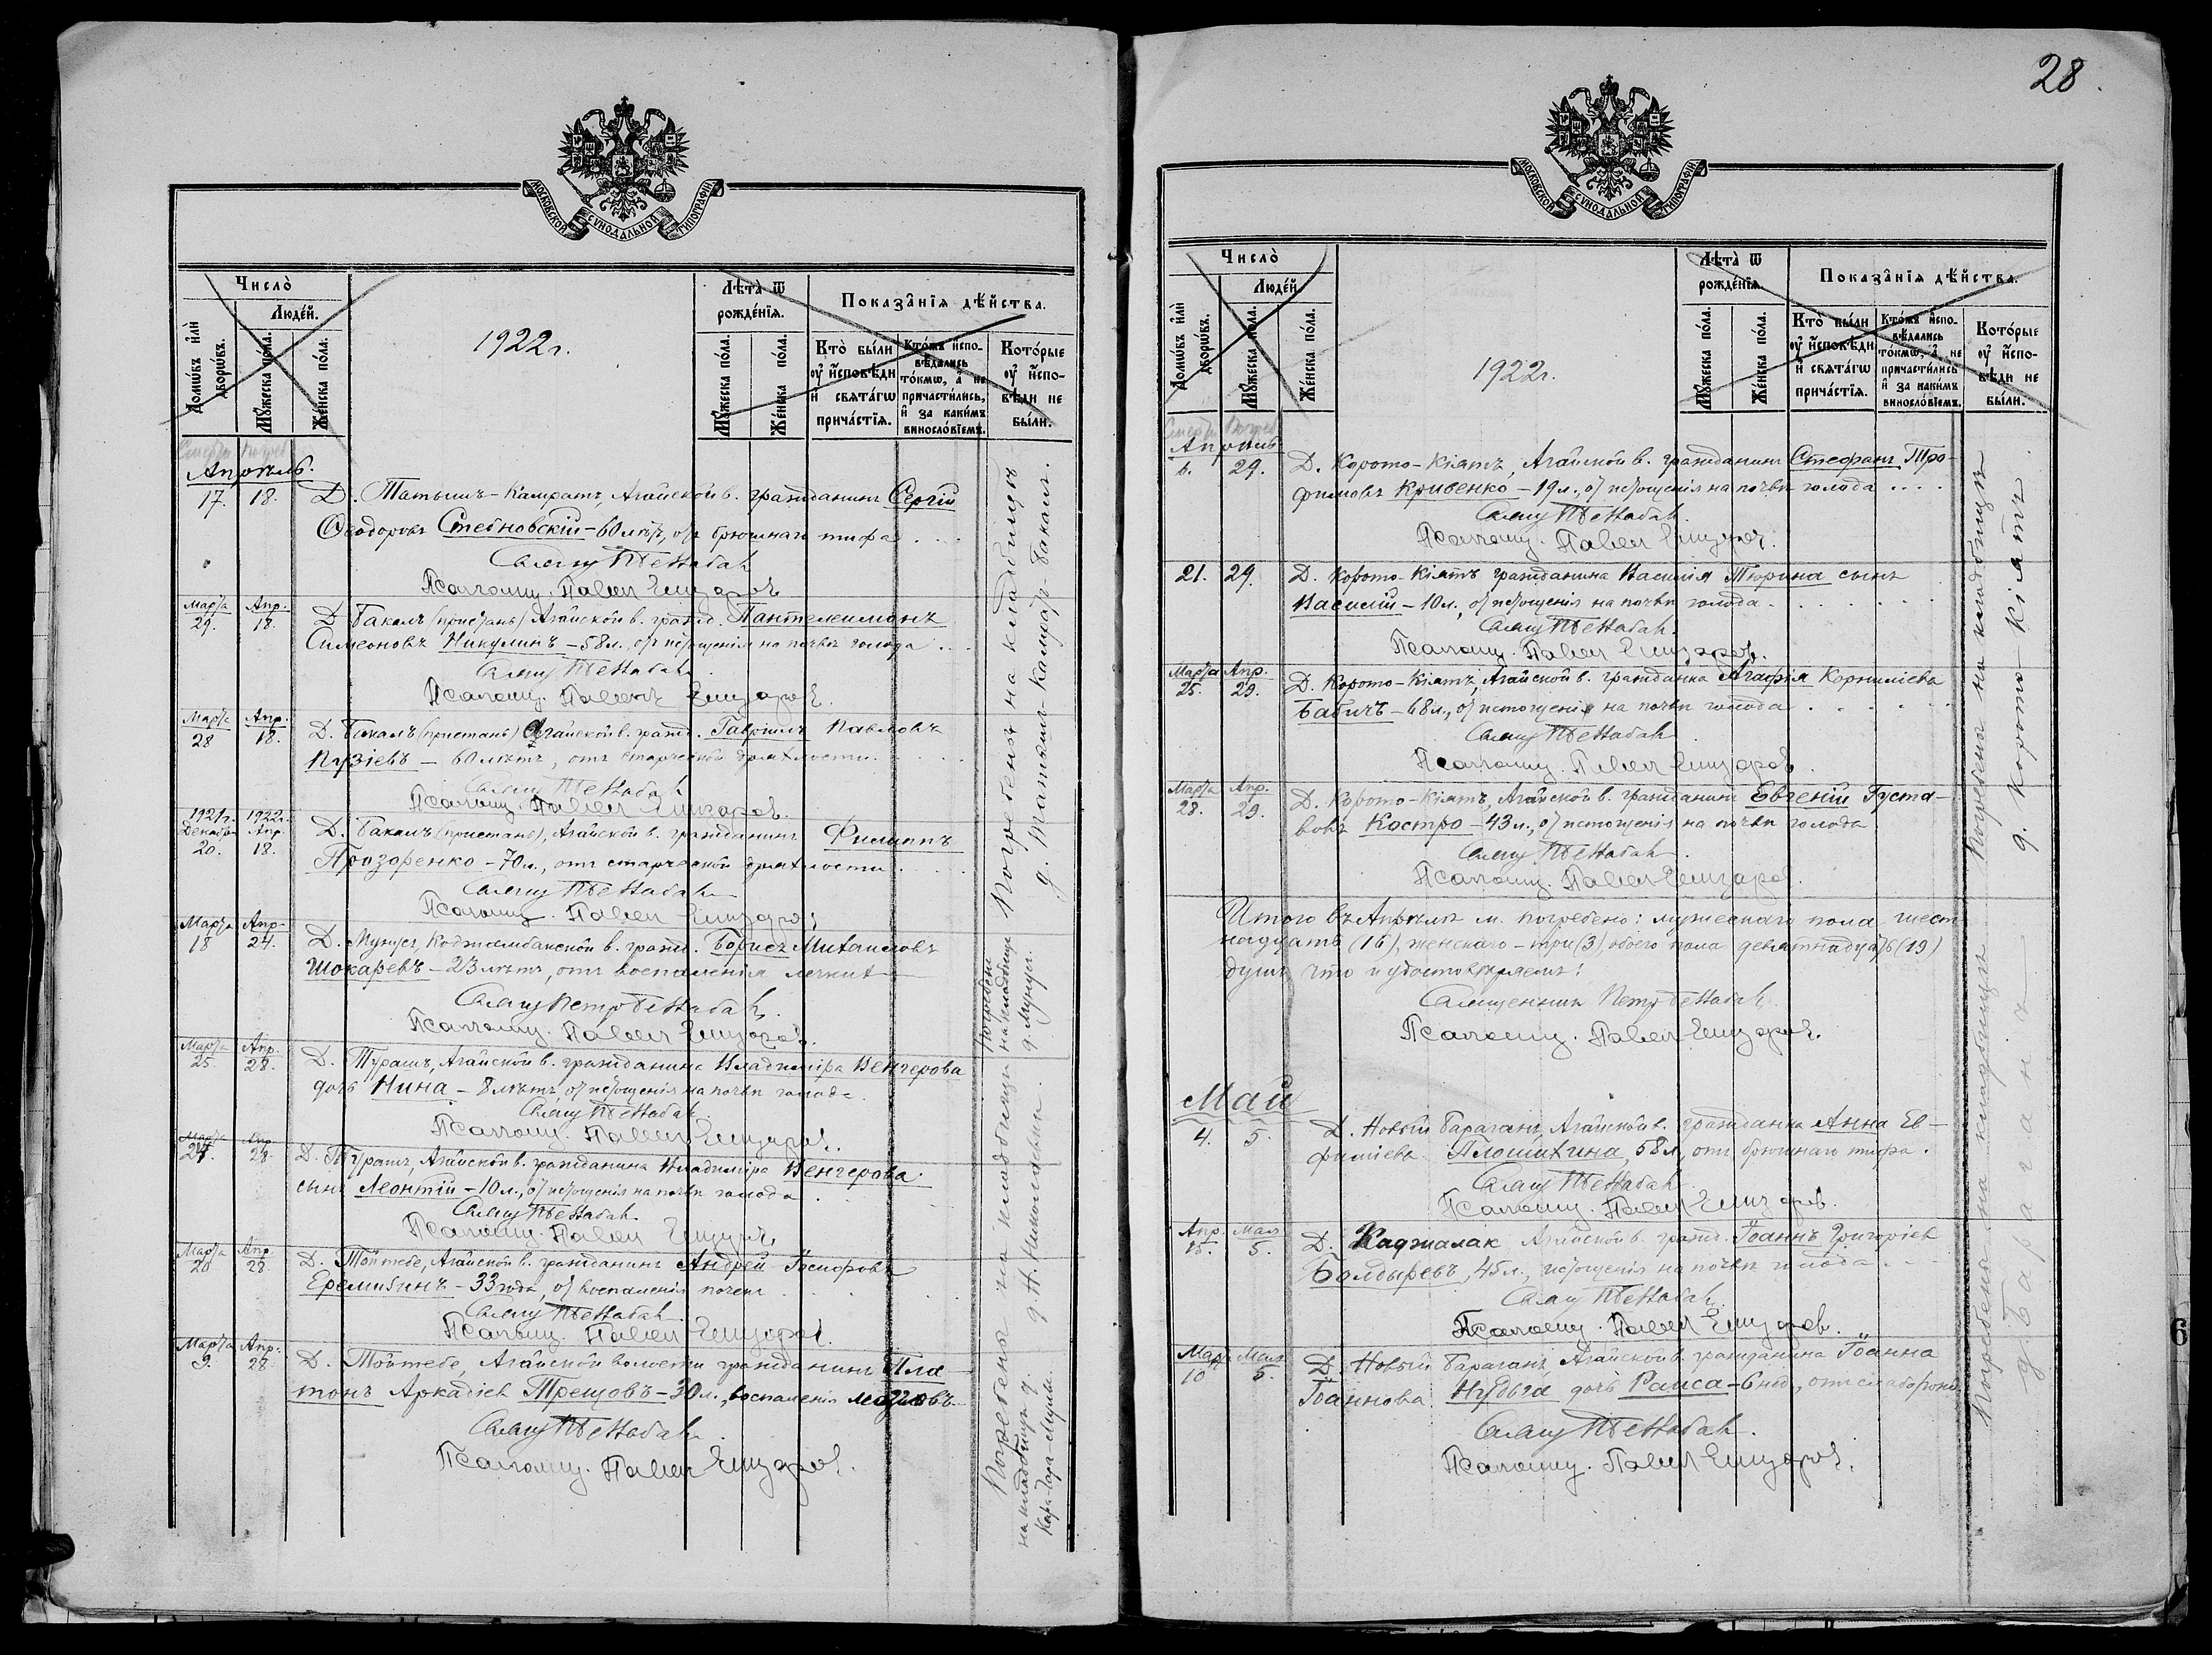 МОСКОВСКОЙ СѴНОДАЛЬНОЙ ТИПОГРАФІИ
Число̀
Людей.
Домѡвъ и҆лѝ дворѡвъ.
Мꙋжеска по́ла.
Же́нска по́ла.
1922 г.
Лѣта̀ ѿ рожде́нїѧ.
Мꙋжеска по́ла.
Же́нска по́ла.
Показа̂нїѧ дѣ́йства.
Кто̀ бы́ли оу҆ и҆сповѣди и҆ свѧта́гѡ прича́стїѧ.
Кто́жъ и҆спо-вѣдались то́кмѡ, а҆ не причасти́лись, и҆ за каки́мъ винословіемъ.
Кото́рые оу҆ и҆спо-вѣди не бы́ли.
Апрѣль.
17. 18. Д. Татышъ-Камратъ, Агайской в. гражданинъ Сергій
Ѳеодоровъ Стебновскій - 60 лѣтъ, отъ брюшнаго тифа
Свящ
Псаломщ. Павел
Марта 29. Апр. 18. Д. Бакалъ (пристань) Агайской в. гражд. Пантелеимонъ
Симеоновъ Никулинъ - 58 л., отъ истощенія на почвѣ голода
Свящ
Псаломщ. Павелъ
Марта 28 Апр. 18. Д. Бакалъ (пристань) Агайской в. гражд. Гавріилъ Павловъ
Пузіевъ - 60 лѣтъ, отъ старческой дряхлости
Свящ
Псаломщ. Павел
1921 г. Декабрь 20. 1922 г. Апр. 18. Д. Бакалъ (пристань), Агайской в. гражданинъ Филиппъ
Прозоренко - 70 л., отъ старческой дряхлости
Свящ
Псаломщ. Павел
Марта 18 Апр. 24. Д. Мунусъ, Коджамбакской в. гражд. Борисъ Михаиловъ
Шокаревъ - 23 лѣтъ, отъ воспаленія легкихъ
Свящ Петр
Псаломщ. Павел
Марта 25. Апр. 28. Д. Турашъ, Агайской в. гражданина Владиміра Венгерова
дочь Нина - 8 лѣтъ, отъ истощенія на почвѣ голода.
Свящ
Псаломщ. Павел
Марта 27. Апр. 28. Д. Турашъ, Агайской в. гражданина Владиміра Венгерова
сынъ Леонтій - 10 л., отъ истощенія на почвѣ голода
Свящ
Псаломщ. Павел
Марта 20 Апр. 28. Д. Тойтебе, Агайской в. гражданинъ Андрей Іосифовъ
33 года, отъ воспаленія почекъ
Свящ
Псаломщ. Павел
Марта 9. Апр. 28. Д. Тойтебе, Агайской волости гражданинъ Пла-
тонъ Аркадіев Трещовъ - 30 л., воспаленія
Свящ
Псаломщ. Павел
Погребены на кладбищѣ
Погребены на кладбищѣ
Погребены на кладбищѣ д. Н. Николаевка.
на кладбищѣ д.
28.
МОСКОВСКОЙ СѴНОДАЛЬНОЙ ТИПОГРАФІИ
Число̀
Людей.
Домѡвъ и҆лѝ дворѡвъ.
Мꙋжеска по́ла.
Же́нска по́ла.
1922 г.
Лѣта̀ ѿ рожде́нїѧ.
Мꙋжеска по́ла.
Же́нска по́ла.
Показа̂нїѧ дѣ́йства.
Кто̀ бы́ли оу҆ и҆сповѣди и҆ свѧта́гѡ прича́стїѧ.
Кто́жъ и҆спо-вѣдались то́кмѡ, а҆ не причасти́лись и҆ за каки́мъ винословіемъ.
Кото́рые оу҆ и҆спо-вѣди не бы́ли.
Апрѣль
6. 29. Д. Корото-Кіятъ, Агайской в. гражданинъ Стефанъ Тро-
фимовъ Кривенко - 19 л., отъ истощенія на почвѣ голода
Свящ
Псаломщ. Павел
21. 29. Д. Корото-Кіятъ гражданина Василія Тюрина сынъ
Василій - 10 л., отъ истощенія на почвѣ голода
Свящ
Псаломщ. Павел
Марта 25. Апр. 29. Д. Корото-Кіятъ, Агайской в. гражданка Агафія Корниліева
Бабичъ - 68 л., отъ истощенія на почвѣ голода
Свящ
Псаломщ. Павел
Марта 28. Апр. 29. Д. Корото-Кіятъ, Агайской в. гражданинъ Евгеній Густа-
вовъ Костро - 43 л., отъ истощенія на почвѣ голода
Свящ
Псаломщ. Павел
Итого въ Апрѣлѣ м. погребено: мужескаго пола шест-
надцать (16), женскаго - три (3), обоего пола девятнадцать (19)
душъ, что и удостовѣряемъ:
Священник Петр
Псаломщ. Павел
Май
4. 5. Д. Новый Бараганъ, Агайской в. гражданка Анна Ев-
фиміева Плошихина, 58 л., отъ брюшнаго тифа.
Свящ
Псаломщ. Павел
Апр. 15. Мая 5. Д. Каджалак Агайской в. гражд. Іоаннъ Григоріев
Болдыревъ, 45 л., истощенія на почвѣ голода
Свящ
Псаломщ. Павел
Март 10 Мая 5. Д. Новый Бараганъ Агайской в. гражданина Іоанна
Іоаннова Нудьга дочь Раиса - 6 нед., отъ
Свящ
Псаломщ. Павел
Погребены на кладбищѣ д. Корото-Кіятъ.
Погребены на кладбищѣ д. Бараганъ